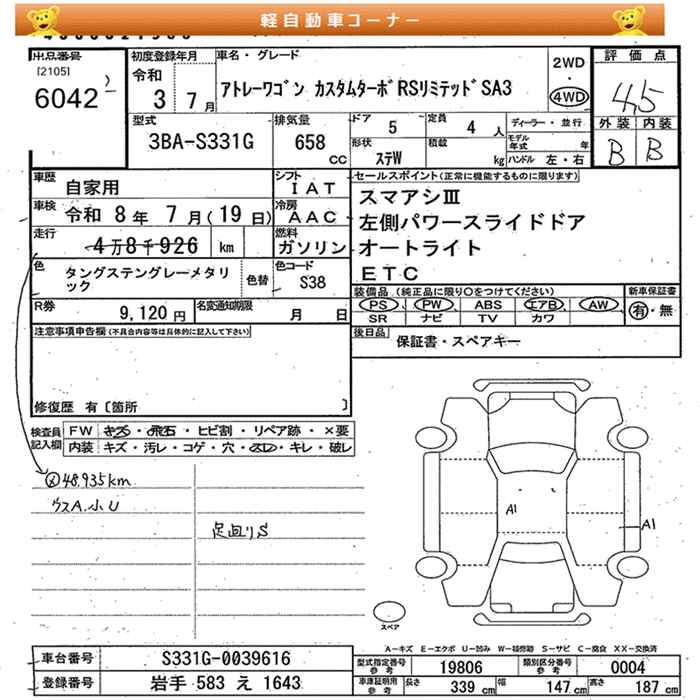 軽自動車コーナー
出品番号
[2105]
6042
初度登録年月
令和
3 7月
車名・グレード
アトレーワゴン カスタムターボRSリミテッドSA3
2WD
・
4WD
評価点
4.5
外装 内装
B B
型式
3BA-S331G
排気量
658 cc
ドア
5
定員
4 人
形状
ステW
積載
kg
ディーラー・並行
モデル年式 年
ハンドル 左・右
車歴
自家用
シフト
IAT
車検
令和 8年 7月(19日)
冷房
AAC
走行
4万8千926 km
燃料
ガソリン
色
タングステングレーメタリック
色替
色コード
S38
R券
9,120円
名変通知期限
月 日
セールスポイント(正常に機能するものに限ります)
スマアシⅢ
左側パワースライドドア
オートライト
ETC
装備品(純正品に限り○をつけてください)
PS PW ABS エアB AW
SR ナビ TV カワ
新車保証書
有・無
後日品
保証書・スペアキー
注意事項申告欄(不具合内容等は具体的に記入して下さい)
修復歴 有〔箇所 〕
検査員記入欄
FW キズ・飛石・ヒビ割・リペア跡・×要
内装 キズ・汚レ・コゲ・穴・スレ・キレ・破レ
48,935km
ウスA.小U
足回りS
A1
A1
スペア
A-キズ E-エクボ U-凹み W-補修跡 S-サビ C-腐食 XX-交換済
車台番号
S331G-0039616
登録番号
岩手 583 え 1643
型式指定番号
参考
19806
類別区分番号
参考
0004
車庫証明用
参考
長さ 339 cm
幅 147 cm
高さ 187 cm